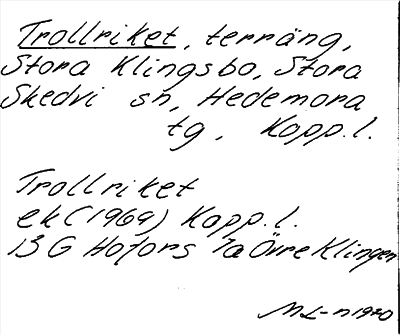 Trollriket, terräng,
Stora Klingsbo, Stora
Skedvi sn, Hedemora
tg, Kopp.l.
Trollriket
ek (1969) Kopp.l.
13 G Hofors 7a Övre Klingen
ML-n 1970